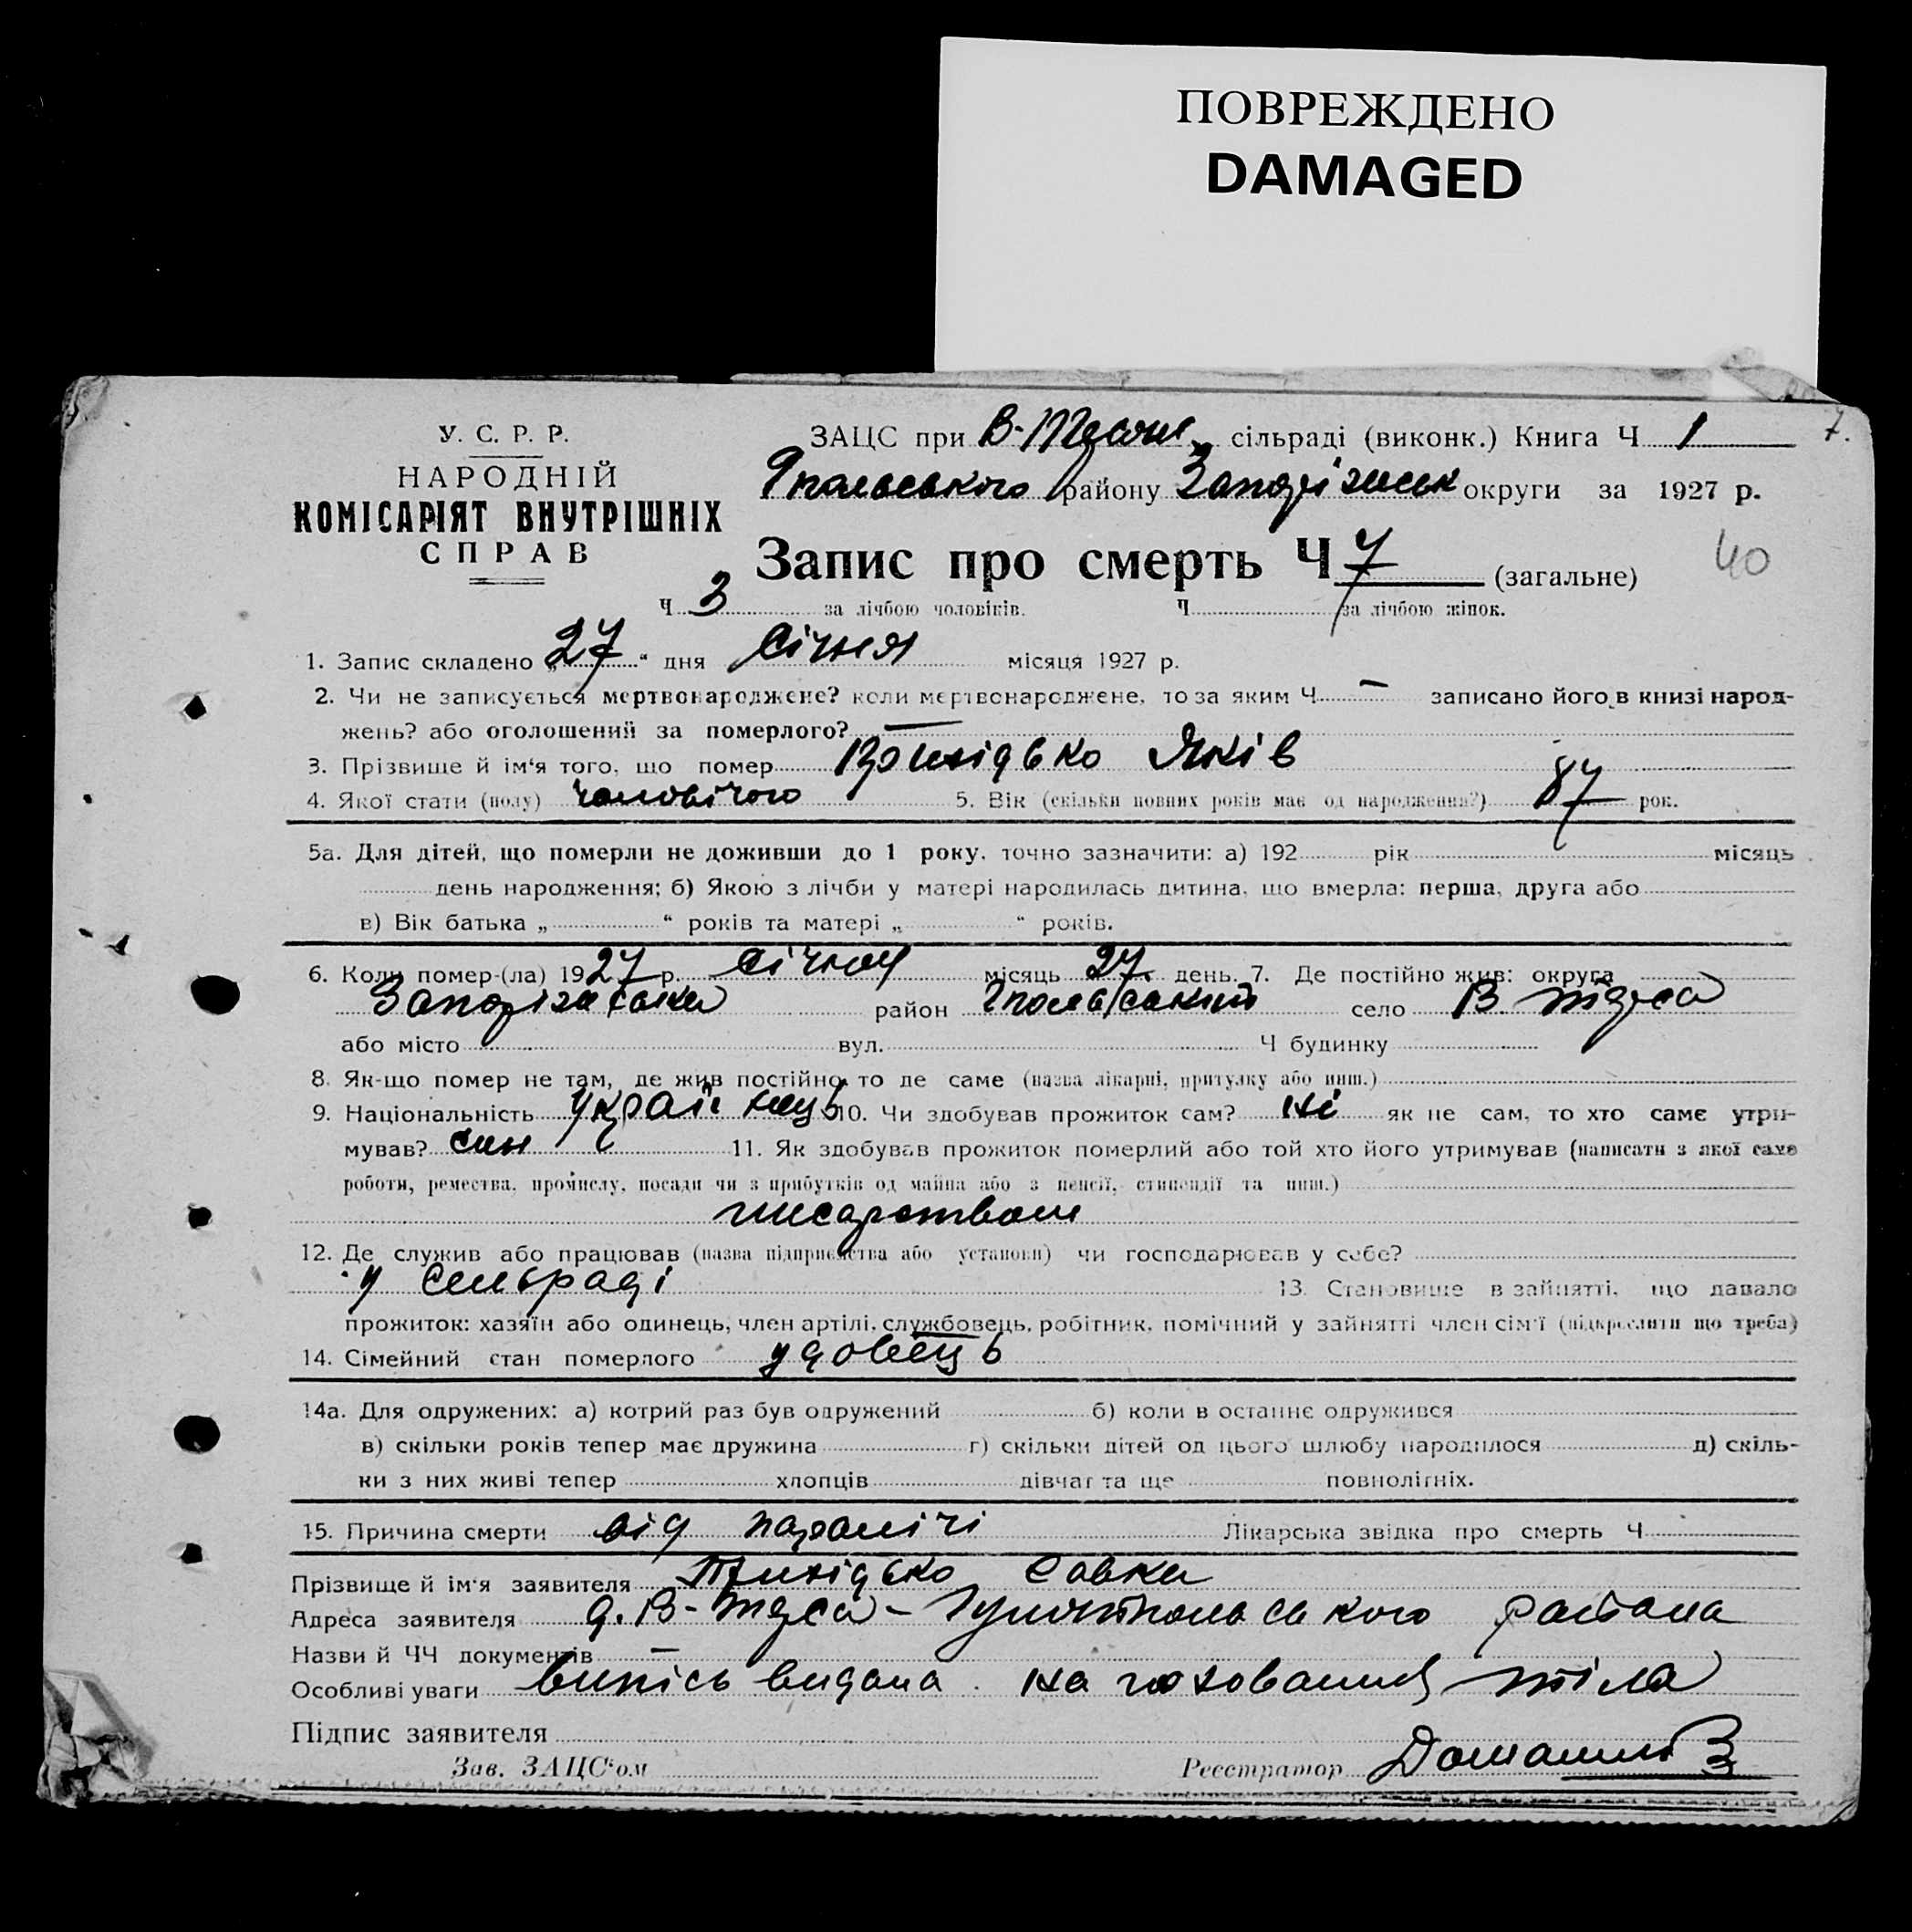 ПОВРЕЖДЕНО
DAMAGED
У. С. Р. Р.
НАРОДНІЙ
КОМІСАРІЯТ ВНУТРІШНІХ
СПРАВ
ЗАЦС при сільраді (виконк.) Книга Ч 1
7.
району округи за 1927 р.
Запис про смерть Ч 7 (загальне)
40
Ч 3 за лічбою чоловіків. Ч за лічбою жінок.
1. Запис складено „27“ дня Січня місяця 1927 р.
2. Чи не записується мертвонароджене? коли мертвонароджене, то за яким Ч — записано його в книзі народ-
жень? або оголошений за померлого? —
3. Прізвище й ім'я того, що помер Яків
4. Якої стати (полу) чоловічого 5. Вік (скільки повних років має од народження?) 87 рок.
5а. Для дітей, що померли не доживши до 1 року, точно зазначити: а) 192 рік місяць
день народження; б) Якою з лічби у матері народилась дитина, що вмерла: перша, друга або
в) Вік батька „ “ років та матері „ “ років.
6. Коли помер-(ла) 1927 р. Січня місяць 27 день. 7. Де постійно жив: округа
район село В.
або місто вул. Ч будинку
8. Як-що помер не там, де жив постійно, то де саме (назва лікарні, притулку або инш.)
9. Національність Українець 10. Чи здобував прожиток сам? ні як не сам, то хто саме утри-
мував? син 11. Як здобував прожиток померлий або той хто його утримував (написати з якої саме
роботи, ремества, промислу, посади чи з прибутків од майна або з пенсії, стипендії та инш.)
писарством
12. Де служив або працював (назва підприємства або установи) чи господарював у себе?
у сельраді 13. Становище в зайнятті, що давало
прожиток: хазяїн або одинець, член артілі, службовець, робітник, помічний у зайнятті член сім'ї (підкреслити що треба)
14. Сімейний стан померлого удовець
14а. Для одружених: а) котрий раз був одружений б) коли в останнє одружився
в) скільки років тепер має дружина г) скільки дітей од цього шлюбу народилося д) скіль-
ки з них живі тепер хлопців дівчат та ще повнолітніх.
15. Причина смерти від паралічі Лікарська звідка про смерть Ч
Прізвище й ім'я заявителя Савка
Адреса заявителя района
Назви й ЧЧ документів —
Особливі уваги випісь видана на поховання тіла
Підпис заявителя
Зав. ЗАЦС‘ом Реєстратор